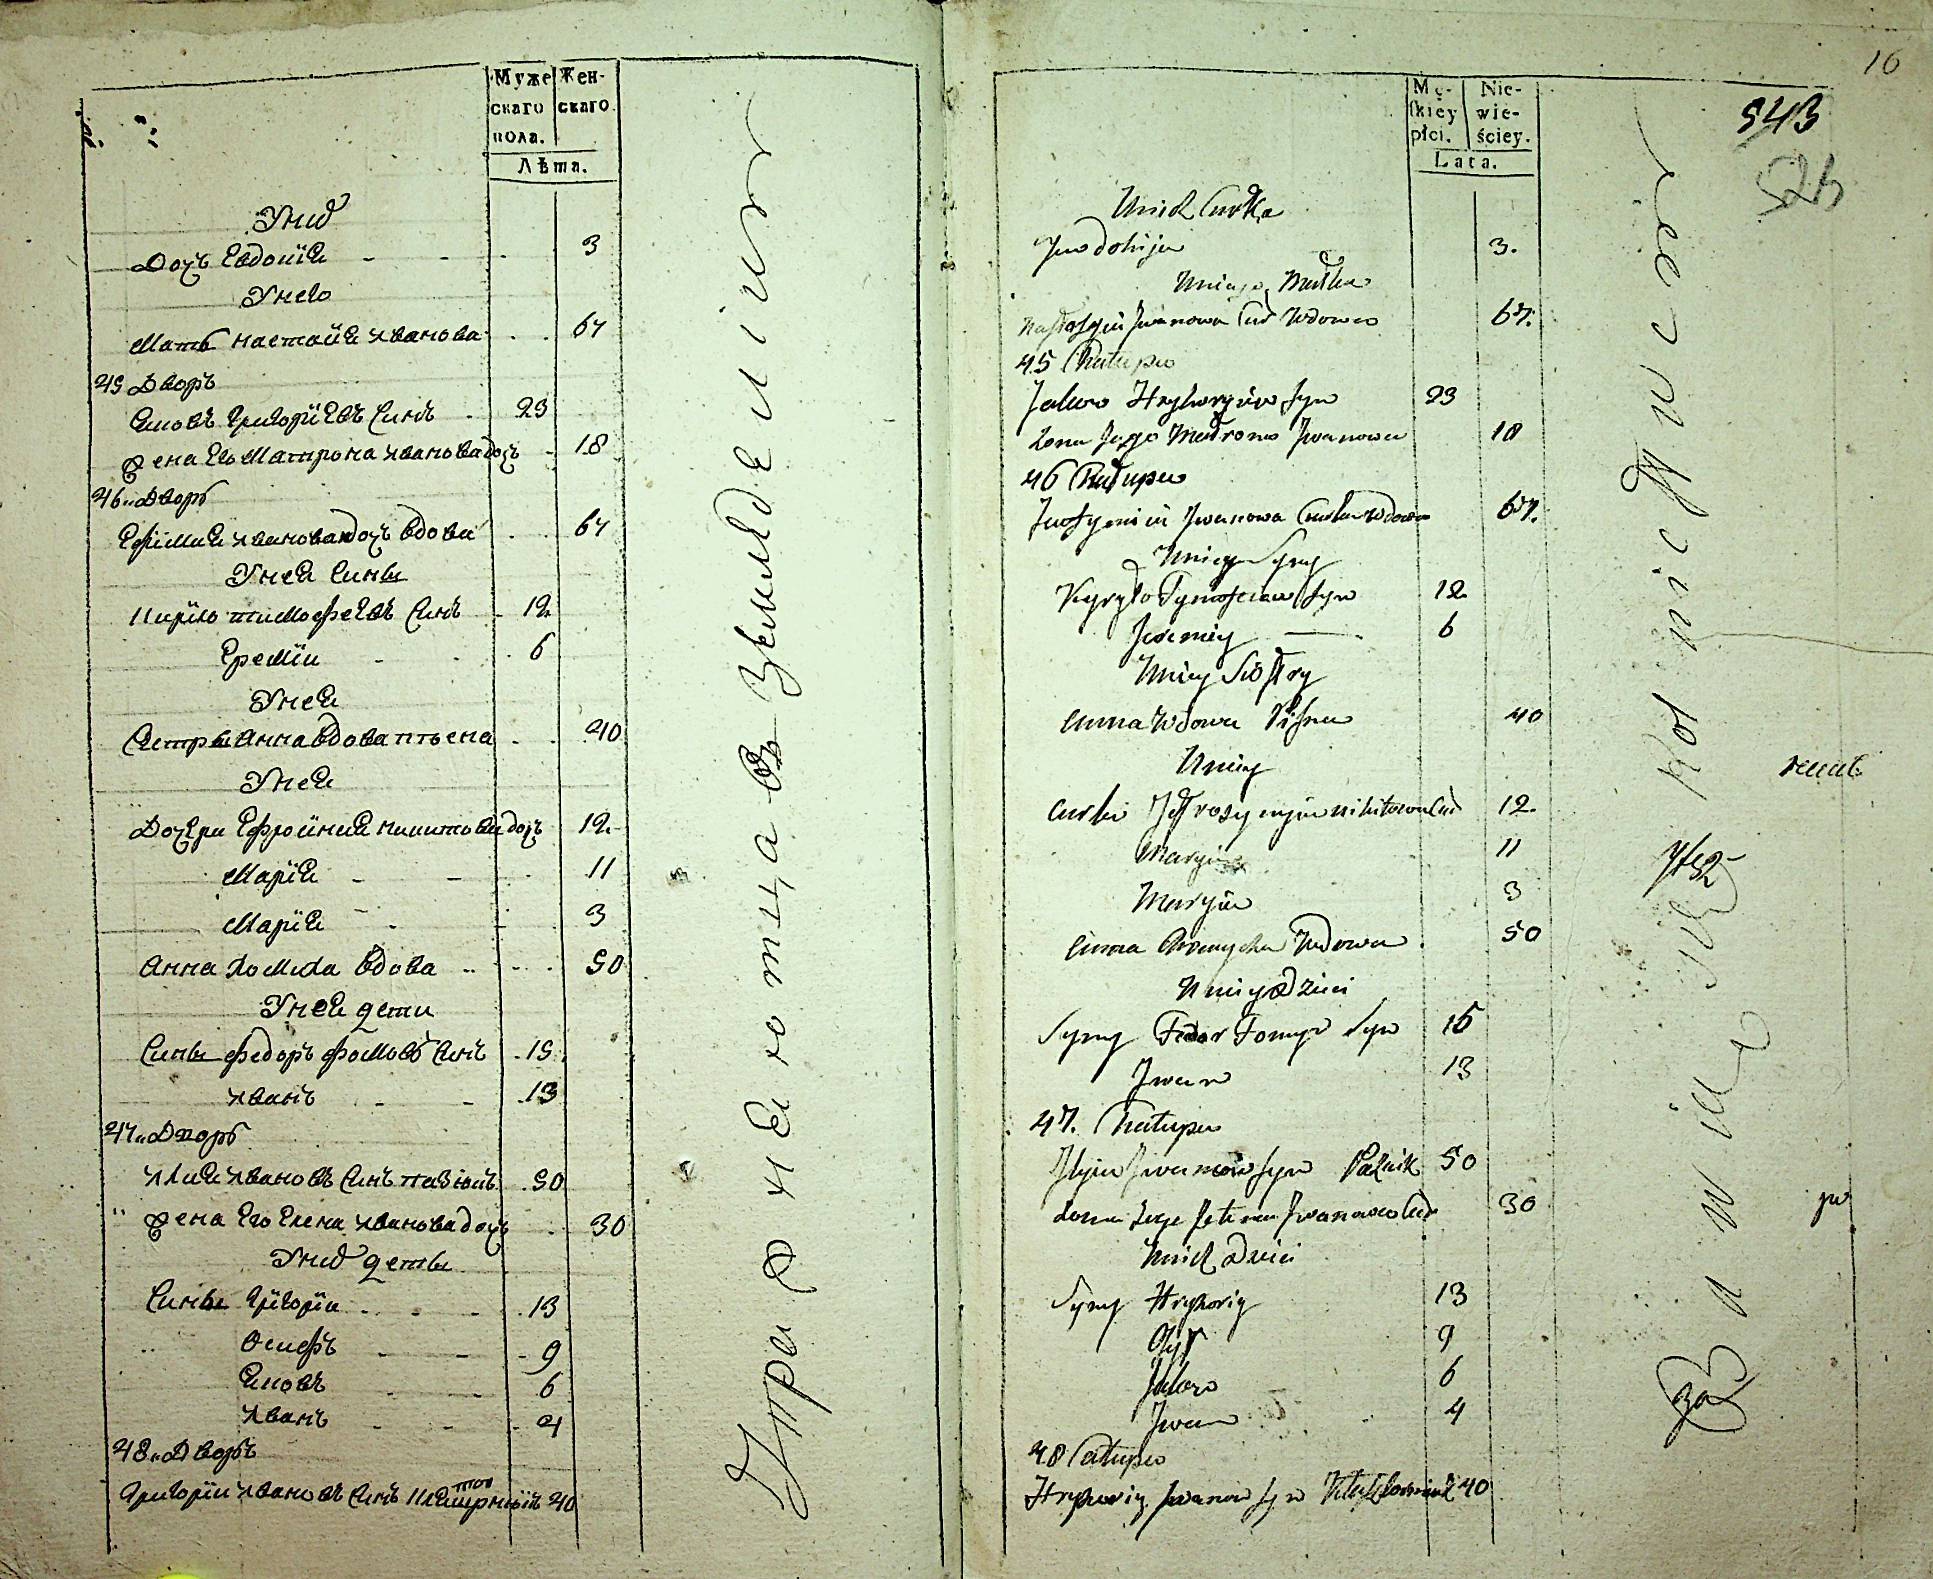 Муже
скаго
пола.
Жен-
скаго.
Лѣта.
Унид
Дочъ Евдокїя 3
Унего
Мать настасия иванова 67
45 Дворъ
Яковъ Григориевъ синъ 23
Жена Его Матрона ивановадочъ 18
46 Дворъ
Ефимия ивановадочъ вдова 67
Унея сины
Кирило тимофеевъ синъ 12
Еремїи 6
Унея
Сестры Анна вдова 40
Унея
Дочери Ефросиния никитовадочъ 12
Марїя 11
Марїя 3
Анна вдова 50
Унея дети
Сины федоръ фомовъ синъ 15
иванъ 13
47 Дворъ
илия ивановъ синъ 50
Жена Его Елена ивановадочъ 30
Унид деты
Сины Григорїи 13
Осифъ 9
Яковъ 6
иванъ 4
48 Дворъ
Григорїи ивановъ синъ 40
Упражняются въ Земледелии
16
543
526
Mę-
skiey
płci.
Nie-
wie-
ściey.
Lata.
Unich Curka
Jewdokija 3.
Uniego Matka
Nastasyia Iwanowa Cur Wdowa 67.
45 Chałupa
Jakow Hryhoryiow syn 23
Zona Jego Matrona Iwanowa 18
46 Chałupa
Iwanowa Curka Wdowa 67.
Uniey Syny
Kyryło syn 12
Jeremiy 6
Uniey Siostry
Anna Wdowa 40
Uniey
Curki nikitowna Cur 12
Maryia 11
Maryia 3
Anna Wdowa 50
Uniey Dzieci
Syny Fedor Fomyn Syn 15
Iwan 13
47. Chałupa
Ilyia Iwanow syn 50
Zona Iego Iwanowa Cur 30
Unich Dzieci
Syny Hryhoriy 13
9
Jakow 6
Iwan 4
48 Chałupa
Hryhoriy Iwanow syn 40
Bawią się Rolnictwem